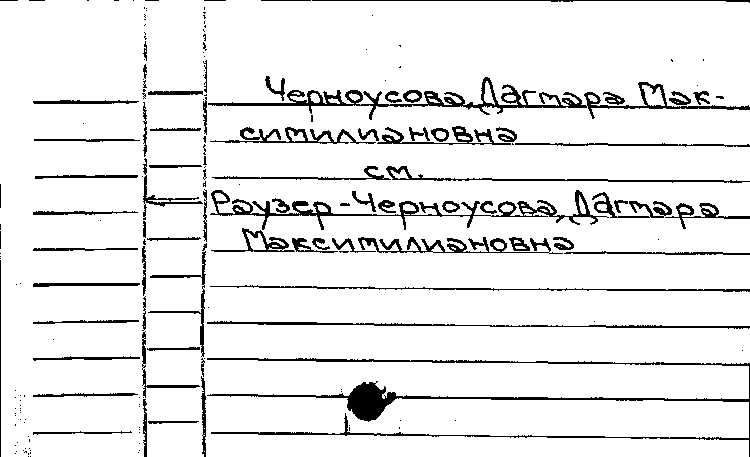 Черноусова, Дагмара Мак-
симилиановна
см.
Раузер-Черноусова, Дагмара
Максимилиановна